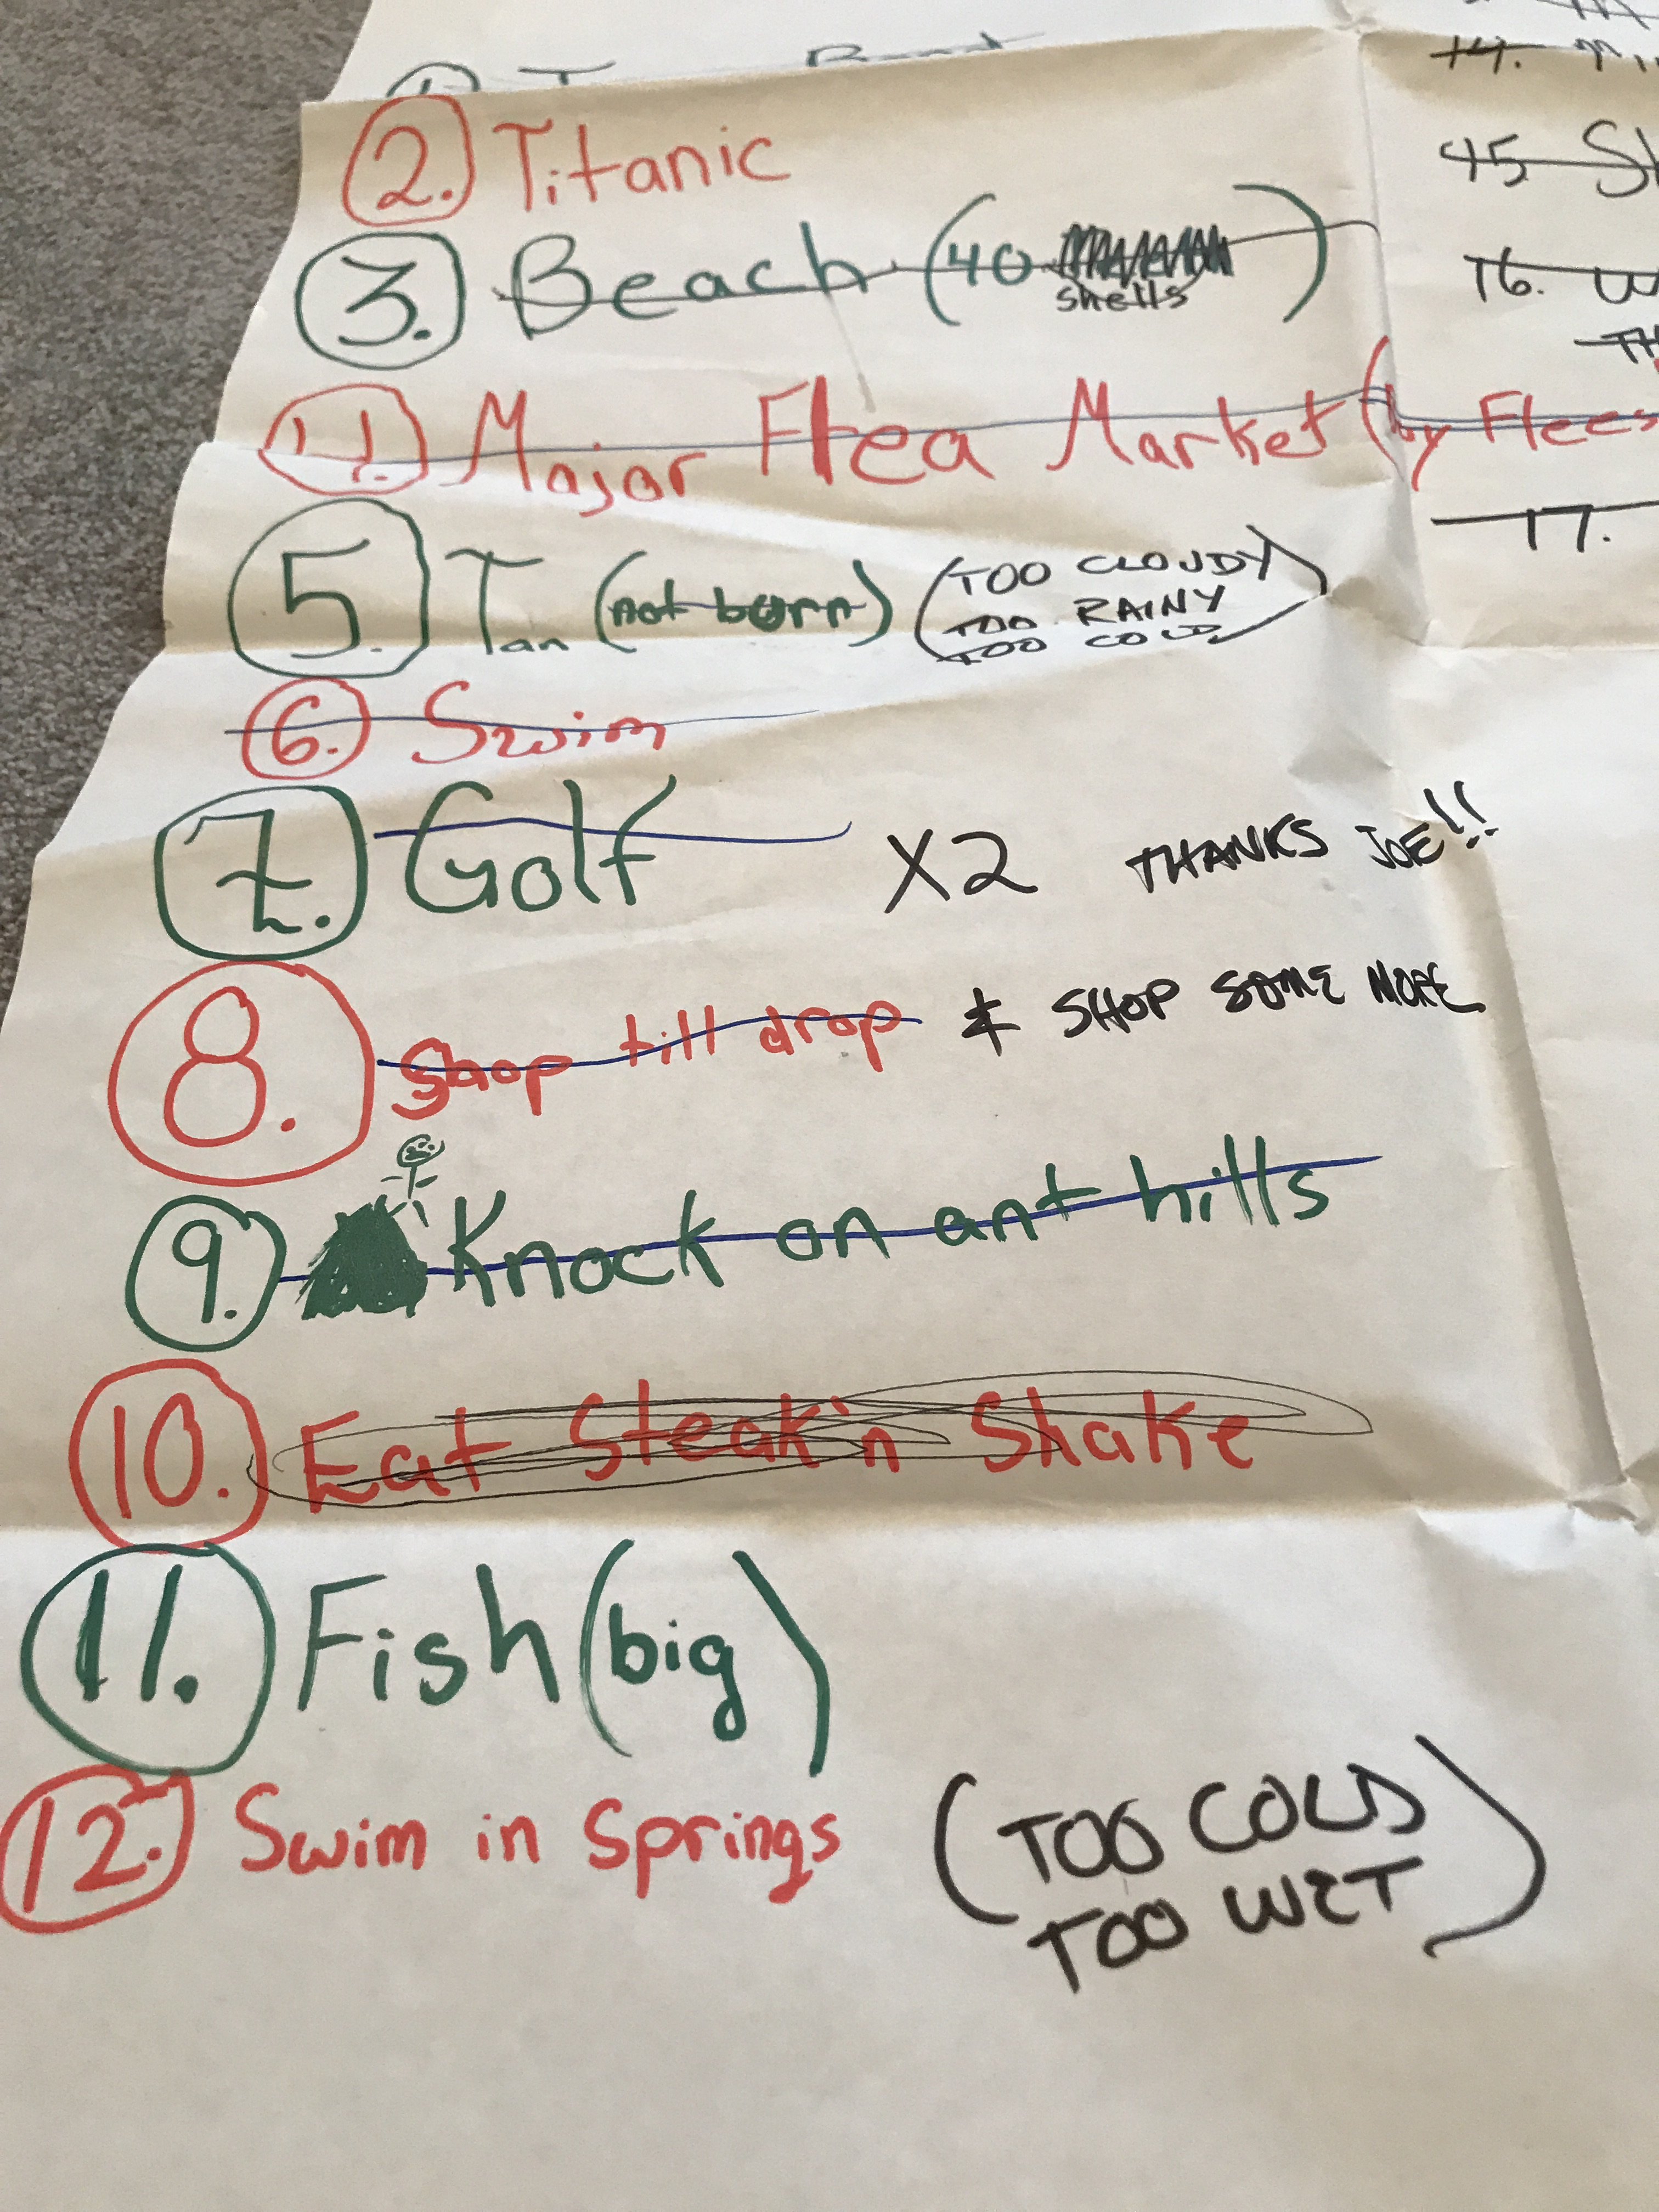 2. Titanic
3. Beach (40 shells)
4. Major Flea Market (by
5. Tan (not burn) (TOO CLOUDY
TOO RAINY
TOO COLD)
6. Swim
7. Golf X2 THANKS JOE!!
8. Shop till drop & SHOP SOME MORE
9. Knock on ant hills
10. Eat Steak'n Shake
11. Fish (big)
12. Swim in Springs (TOO COLD
TOO WET)
14.
15
16.
17.